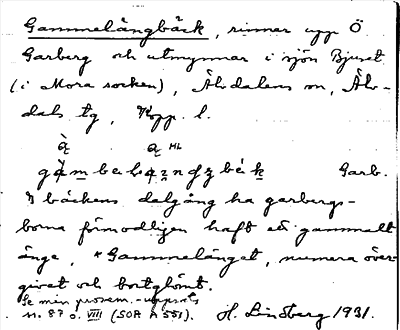 Gammelängbäck, rinner upp Ö
Garberg och utmynnar i sjön Bjuset
(i Mora socken), Älvdalens sn, Älv-
dals tg, Kopp. l.
Garb.
I bäckens dalgång ha garbergs-
borna förmodligen haft ett gammalt
änge, *Gammelänget, numera över-
givet och bortglömt.
Se min prosem.-uppsats
n:o 87 o. VIII (SOA A 551). H. Lindberg 1931.